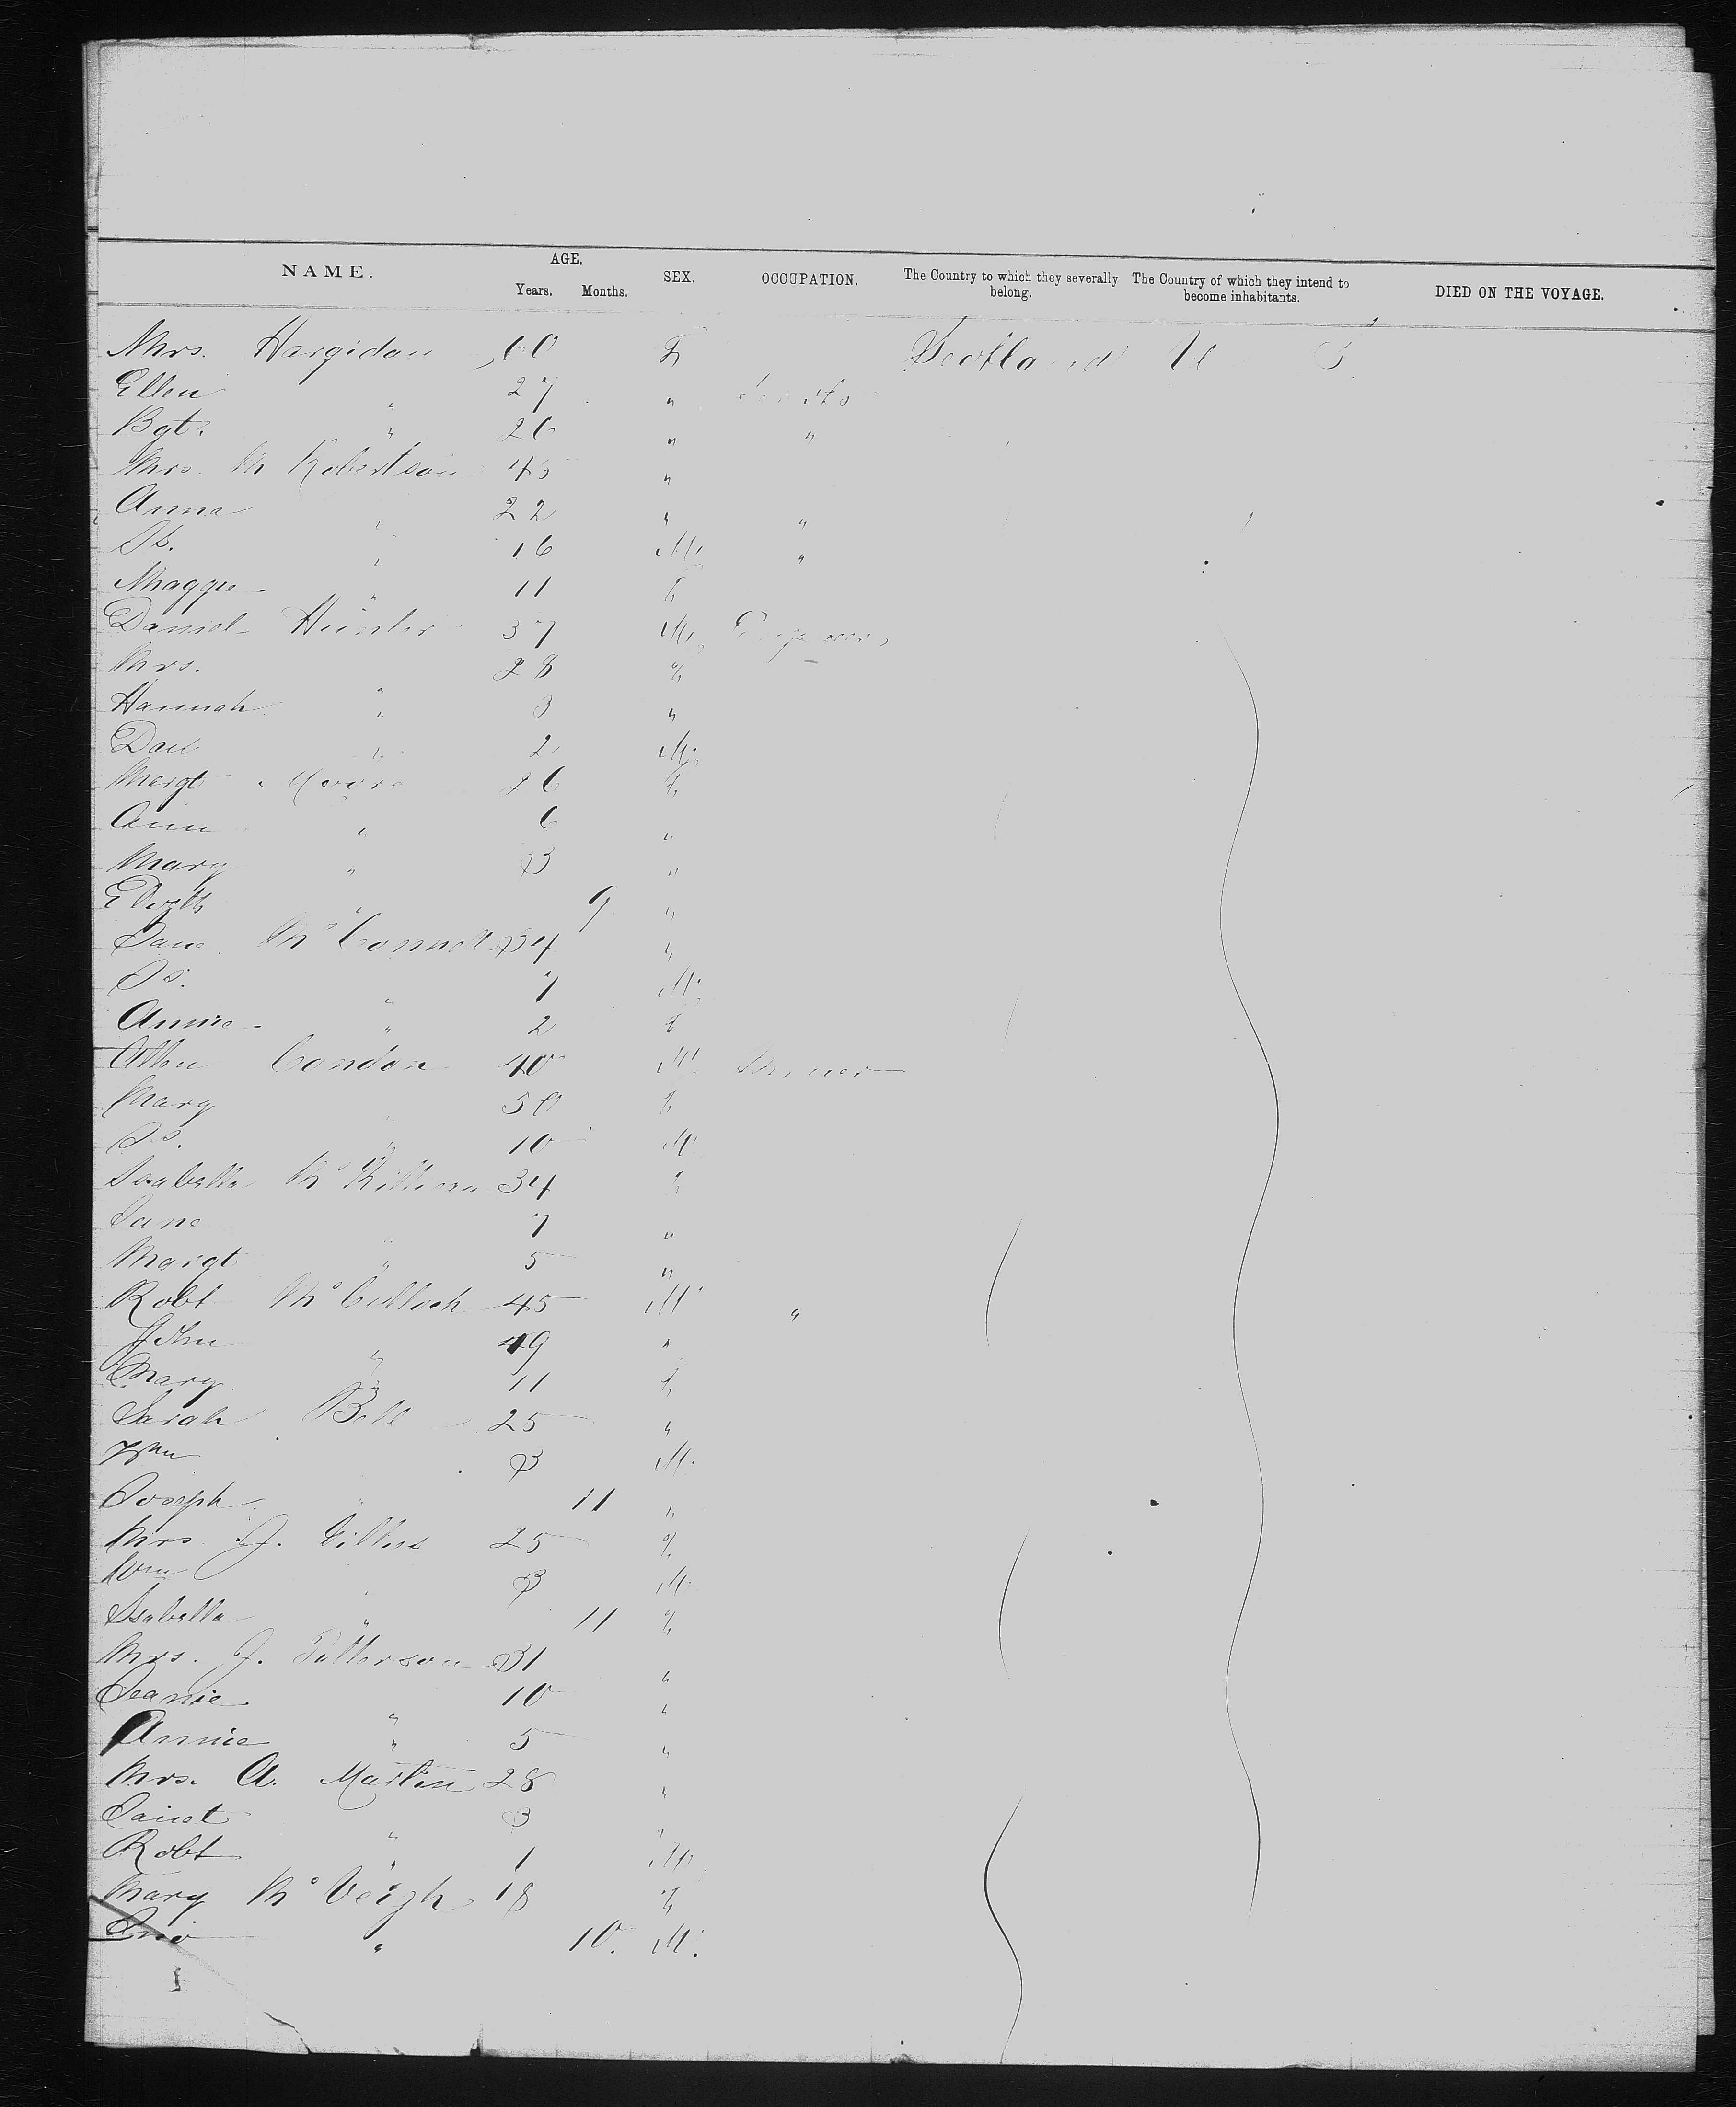 NAME. AGE. Years. Months. SEX. OCCUPATION. The Country to which they severally belong. The Country of which they intend to become inhabitants. DIED ON THE VOYAGE.
Mrs. Hargidan 60 F Scotland U S
Ellen " 27 "
Bgt. " 26 " "
Mrs. M Robertson 45 "
Anna " 22 " "
" 16 M "
Maggie " 11 F
Daniel Hunter 37 M
Mrs. " 28 F
Hannah " 3 "
Dan " 2 M
Margt Moore 26 F
Ann " 6 "
Mary " 3 "
" 9 "
Jane McConnell 34 "
Js. " 7 M
Annie " 2 F
Allen Condon 40 M Miner
Mary " 50 F
Js. " 10 M
Isabella 34 F
Jane " 7 "
Margt " 5 "
Robt McCulloch 45 M "
John " 49 "
Mary " 11 F
Sarah Bell 25 "
Wm 3 M
Joseph " 11 "
Mrs. J. 25 F
Wm " 3 M
Isabella " 11 F
Mrs. J. Patterson 31 "
Jeanie " 10 "
Annie " 5 "
Mrs. A. Martin 28 "
Janet " 3 "
Robt " 1 M
Mary McVeigh 18 F
" 10. M.